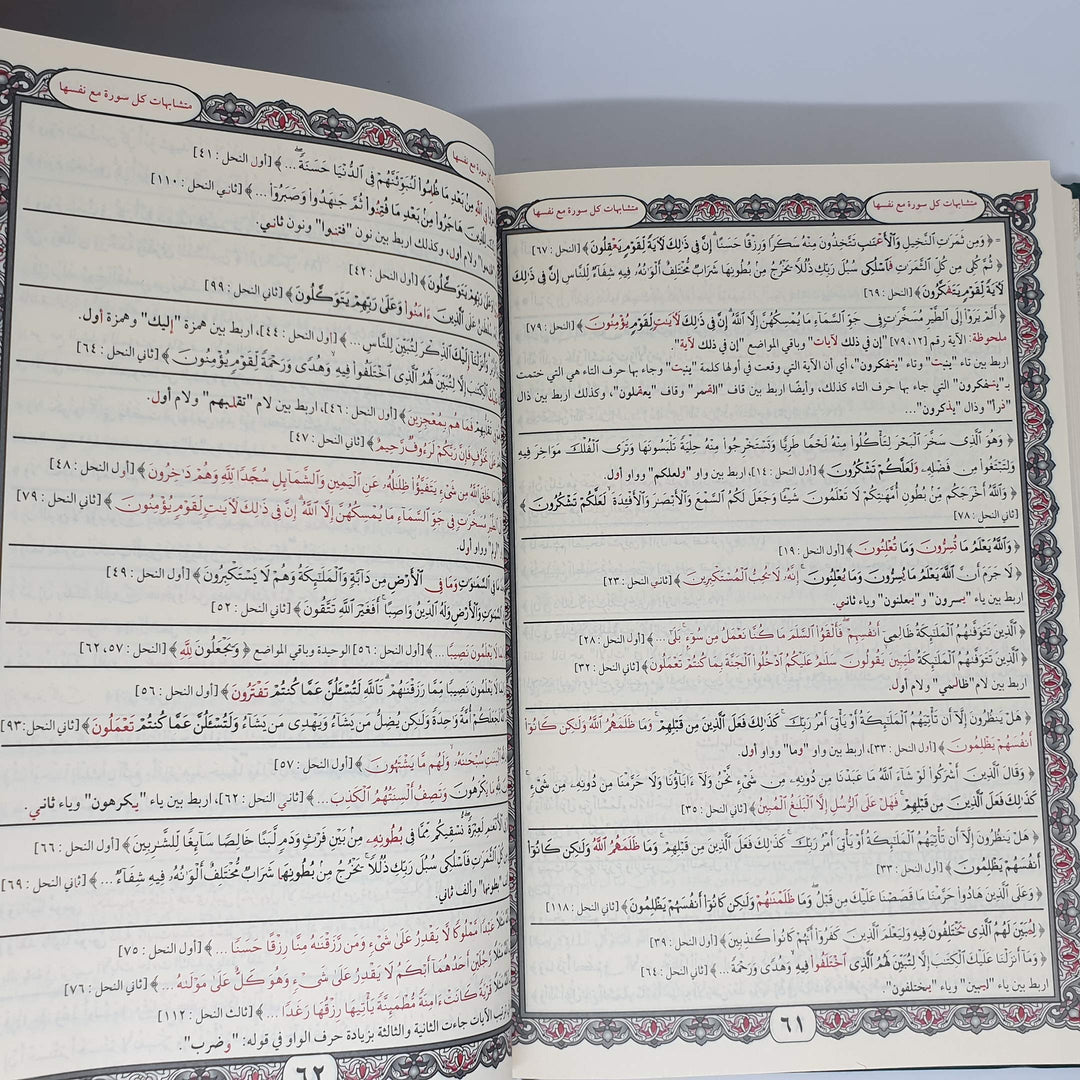 متشابهات كل سورة مع نفسها
متشابهات كل سورة مع نفسها
= ﴿ وَمِن ثَمَرَٰتِ ٱلنَّخِيلِ وَٱلْأَعْنَٰبِ تَتَّخِذُونَ مِنْهُ سَكَرًا وَرِزْقًا حَسَنًا ۗ إِنَّ فِى ذَٰلِكَ لَءَايَةً لِّقَوْمٍ يَعْقِلُونَ ﴾ [النحل : ٦٧]
﴿ ثُمَّ كُلِى مِن كُلِّ ٱلثَّمَرَٰتِ فَٱسْلُكِى سُبُلَ رَبِّكِ ذُلُلًا ۚ يَخْرُجُ مِنۢ بُطُونِهَا شَرَابٌ مُّخْتَلِفٌ أَلْوَٰنُهُۥ فِيهِ شِفَآءٌ لِّلنَّاسِ ۗ إِنَّ فِى ذَٰلِكَ
لَءَايَةً لِّقَوْمٍ يَتَفَكَّرُونَ ﴾ [النحل : ٦٩]
﴿ أَلَمْ يَرَوْا۟ إِلَى ٱلطَّيْرِ مُسَخَّرَٰتٍ فِى جَوِّ ٱلسَّمَآءِ مَا يُمْسِكُهُنَّ إِلَّا ٱللَّهُ ۗ إِنَّ فِى ذَٰلِكَ لَءَايَٰتٍ لِّقَوْمٍ يُؤْمِنُونَ ﴾ [النحل : ٧٩]
ملحوظة: الآية رقم ٧٩،١٢ "إن في ذلك لآيات" وباقي المواضع "إن في ذلك لآية".
اربط بين تاء "ينبت" وتاء "يتفكرون"، أي أن الآية التي وقعت في أولها كلمة "ينبت" وجاء بها حرف التاء هي التي ختمت
بـ"يتفكرون" التي جاء بها حرف التاء كذلك، وأيضًا اربط بين قاف "القمر" وقاف "يعقلون"، وكذلك اربط بين ذال
"ذرأ" وذال "يذكرون"...
﴿ وَهُوَ ٱلَّذِى سَخَّرَ ٱلْبَحْرَ لِتَأْكُلُوا۟ مِنْهُ لَحْمًا طَرِيًّا وَتَسْتَخْرِجُوا۟ مِنْهُ حِلْيَةً تَلْبَسُونَهَا وَتَرَى ٱلْفُلْكَ مَوَاخِرَ فِيهِ
وَلِتَبْتَغُوا۟ مِن فَضْلِهِۦ وَلَعَلَّكُمْ تَشْكُرُونَ ﴾ [أول النحل : ١٤]، اربط بين واو "ولعلكم" وواو أول.
﴿ وَٱللَّهُ أَخْرَجَكُم مِّنۢ بُطُونِ أُمَّهَٰتِكُمْ لَا تَعْلَمُونَ شَيْـًٔا وَجَعَلَ لَكُمُ ٱلسَّمْعَ وَٱلْأَبْصَٰرَ وَٱلْأَفْـِٔدَةَ ۙ لَعَلَّكُمْ تَشْكُرُونَ ﴾
[ثاني النحل : ٧٨]
﴿ وَٱللَّهُ يَعْلَمُ مَا تُسِرُّونَ وَمَا تُعْلِنُونَ ﴾ [أول النحل : ١٩]
﴿ لَا جَرَمَ أَنَّ ٱللَّهَ يَعْلَمُ مَا يُسِرُّونَ وَمَا يُعْلِنُونَ ۚ إِنَّهُۥ لَا يُحِبُّ ٱلْمُسْتَكْبِرِينَ ﴾ [ثاني النحل : ٢٣]
اربط بين ياء "يسرون" و"يعلنون" وياء ثاني.
﴿ ٱلَّذِينَ تَتَوَفَّىٰهُمُ ٱلْمَلَٰٓئِكَةُ ظَالِمِىٓ أَنفُسِهِمْ ۖ فَأَلْقَوُا۟ ٱلسَّلَمَ مَا كُنَّا نَعْمَلُ مِن سُوٓءٍۭ ۚ بَلَىٰٓ ... ﴾ [أول النحل : ٢٨]
﴿ ٱلَّذِينَ تَتَوَفَّىٰهُمُ ٱلْمَلَٰٓئِكَةُ طَيِّبِينَ ۙ يَقُولُونَ سَلَٰمٌ عَلَيْكُمُ ٱدْخُلُوا۟ ٱلْجَنَّةَ بِمَا كُنتُمْ تَعْمَلُونَ ﴾ [ثاني النحل : ٣٢]
اربط بين لام"ظالمي" ولام أول.
﴿ هَلْ يَنظُرُونَ إِلَّآ أَن تَأْتِيَهُمُ ٱلْمَلَٰٓئِكَةُ أَوْ يَأْتِىَ أَمْرُ رَبِّكَ ۚ كَذَٰلِكَ فَعَلَ ٱلَّذِينَ مِن قَبْلِهِمْ ۚ وَمَا ظَلَمَهُمُ ٱللَّهُ وَلَٰكِن كَانُوٓا۟
أَنفُسَهُمْ يَظْلِمُونَ ﴾ [أول النحل : ٣٣]، اربط بين واو "وما" وواو أول.
﴿ وَقَالَ ٱلَّذِينَ أَشْرَكُوا۟ لَوْ شَآءَ ٱللَّهُ مَا عَبَدْنَا مِن دُونِهِۦ مِن شَىْءٍ نَّحْنُ وَلَآ ءَابَآؤُنَا وَلَا حَرَّمْنَا مِن دُونِهِۦ مِن شَىْءٍ ۚ
كَذَٰلِكَ فَعَلَ ٱلَّذِينَ مِن قَبْلِهِمْ ۚ فَهَلْ عَلَى ٱلرُّسُلِ إِلَّا ٱلْبَلَٰغُ ٱلْمُبِينُ ﴾ [ثاني النحل : ٣٥]
﴿ هَلْ يَنظُرُونَ إِلَّآ أَن تَأْتِيَهُمُ ٱلْمَلَٰٓئِكَةُ أَوْ يَأْتِىَ أَمْرُ رَبِّكَ ۚ كَذَٰلِكَ فَعَلَ ٱلَّذِينَ مِن قَبْلِهِمْ ۚ وَمَا ظَلَمَهُمُ ٱللَّهُ وَلَٰكِن كَانُوٓا۟
أَنفُسَهُمْ يَظْلِمُونَ ﴾ [أول النحل : ٣٣]
﴿ وَعَلَى ٱلَّذِينَ هَادُوا۟ حَرَّمْنَا مَا قَصَصْنَا عَلَيْكَ مِن قَبْلُ ۖ وَمَا ظَلَمْنَٰهُمْ وَلَٰكِن كَانُوٓا۟ أَنفُسَهُمْ يَظْلِمُونَ ﴾ [ثاني النحل : ١١٨]
﴿ لِيُبَيِّنَ لَهُمُ ٱلَّذِى يَخْتَلِفُونَ فِيهِ وَلِيَعْلَمَ ٱلَّذِينَ كَفَرُوٓا۟ أَنَّهُمْ كَانُوا۟ كَٰذِبِينَ ﴾ [أول النحل : ٣٩]
﴿ وَمَآ أَنزَلْنَا عَلَيْكَ ٱلْكِتَٰبَ إِلَّا لِتُبَيِّنَ لَهُمُ ٱلَّذِى ٱخْتَلَفُوا۟ فِيهِ ۙ وَهُدًى وَرَحْمَةً ... ﴾ [ثاني النحل : ٦٤]
اربط بين ياء "ليبين" وياء "يختلفون".
٦١
متشابهات كل سورة مع نفسها
مع نفسها
فِى ٱللَّهِ مِنۢ بَعْدِ مَا ظُلِمُوا۟ لَنُبَوِّئَنَّهُمْ فِى ٱلدُّنْيَا حَسَنَةً ۖ ... ﴾ [أول النحل : ٤١]
لِلَّذِينَ هَاجَرُوا۟ مِنۢ بَعْدِ مَا فُتِنُوا۟ ثُمَّ جَٰهَدُوا۟ وَصَبَرُوٓا۟ ... ﴾ [ثاني النحل : ١١٠]
ولام أول، وكذلك اربط بين نون "فتنوا" ونون ثاني.
وَعَلَىٰ رَبِّهِمْ يَتَوَكَّلُونَ ﴾ [أول النحل : ٤٢]
عَلَى ٱلَّذِينَ ءَامَنُوا۟ وَعَلَىٰ رَبِّهِمْ يَتَوَكَّلُونَ ﴾ [ثاني النحل : ٩٩]
وَأَنزَلْنَآ إِلَيْكَ ٱلذِّكْرَ لِتُبَيِّنَ لِلنَّاسِ ... ﴾ [أول النحل : ٤٤]، اربط بين همزة "إليك" وهمزة أول.
ٱلْكِتَٰبَ إِلَّا لِتُبَيِّنَ لَهُمُ ٱلَّذِى ٱخْتَلَفُوا۟ فِيهِ ۙ وَهُدًى وَرَحْمَةً لِّقَوْمٍ يُؤْمِنُونَ ﴾ [ثاني النحل : ٦٤]
تَقَلُّبِهِمْ فَمَا هُم بِمُعْجِزِينَ ﴾ [أول النحل : ٤٦]، اربط بين لام "تقلبهم" ولام أول.
عَلَىٰ تَخَوُّفٍ فَإِنَّ رَبَّكُمْ لَرَءُوفٌ رَّحِيمٌ ﴾ [ثاني النحل : ٤٧]
مَا خَلَقَ ٱللَّهُ مِن شَىْءٍ يَتَفَيَّؤُا۟ ظِلَٰلُهُۥ عَنِ ٱلْيَمِينِ وَٱلشَّمَآئِلِ سُجَّدًا لِّلَّهِ وَهُمْ دَٰخِرُونَ ﴾ [أول النحل : ٤٨]
ٱلطَّيْرِ مُسَخَّرَٰتٍ فِى جَوِّ ٱلسَّمَآءِ مَا يُمْسِكُهُنَّ إِلَّا ٱللَّهُ ۗ إِنَّ فِى ذَٰلِكَ لَءَايَٰتٍ لِّقَوْمٍ يُؤْمِنُونَ ﴾ [ثاني النحل : ٧٩]
وواو أول.
مَا فِى ٱلسَّمَٰوَٰتِ وَمَا فِى ٱلْأَرْضِ مِن دَآبَّةٍ وَٱلْمَلَٰٓئِكَةُ وَهُمْ لَا يَسْتَكْبِرُونَ ﴾ [أول النحل : ٤٩]
ٱلسَّمَٰوَٰتِ وَٱلْأَرْضِ وَلَهُ ٱلدِّينُ وَاصِبًا ۚ أَفَغَيْرَ ٱللَّهِ تَتَّقُونَ ﴾ [ثاني النحل : ٥٢]
لَا يَعْلَمُونَ نَصِيبًا ... ﴾ [أول النحل : ٥٦] الوحيدة وباقي المواضع ﴿ وَيَجْعَلُونَ لِلَّهِ ﴾ [النحل : ٦٢،٥٧]
لَا يَعْلَمُونَ نَصِيبًا مِّمَّا رَزَقْنَٰهُمْ ۗ تَٱللَّهِ لَتُسْـَٔلُنَّ عَمَّا كُنتُمْ تَفْتَرُونَ ﴾ [أول النحل : ٥٦]
لَجَعَلَكُمْ أُمَّةً وَٰحِدَةً وَلَٰكِن يُضِلُّ مَن يَشَآءُ وَيَهْدِى مَن يَشَآءُ ۚ وَلَتُسْـَٔلُنَّ عَمَّا كُنتُمْ تَعْمَلُونَ ﴾ [ثاني النحل : ٩٣]
ٱلْبَنَٰتِ سُبْحَٰنَهُۥ ۙ وَلَهُم مَّا يَشْتَهُونَ ﴾ [أول النحل : ٥٧]
لِلَّهِ مَا يَكْرَهُونَ وَتَصِفُ أَلْسِنَتُهُمُ ٱلْكَذِبَ ... ﴾ [ثاني النحل : ٦٢]، اربط بين ياء "يكرهون" وياء ثاني.
ٱلْأَنْعَٰمِ لَعِبْرَةً ۖ نُّسْقِيكُم مِّمَّا فِى بُطُونِهِۦ مِنۢ بَيْنِ فَرْثٍ وَدَمٍ لَّبَنًا خَالِصًا سَآئِغًا لِّلشَّٰرِبِينَ ﴾ [أول النحل : ٦٦]
كُلِّ ٱلثَّمَرَٰتِ فَٱسْلُكِى سُبُلَ رَبِّكِ ذُلُلًا ۚ يَخْرُجُ مِنۢ بُطُونِهَا شَرَابٌ مُّخْتَلِفٌ أَلْوَٰنُهُۥ فِيهِ شِفَآءٌ ... ﴾ [ثاني النحل : ٦٩]
"بطونها" وألف ثاني.
مَثَلًا عَبْدًا مَّمْلُوكًا لَّا يَقْدِرُ عَلَىٰ شَىْءٍ وَمَن رَّزَقْنَٰهُ مِنَّا رِزْقًا حَسَنًا ... ﴾ [أول النحل : ٧٥]
مَثَلًا رَّجُلَيْنِ أَحَدُهُمَآ أَبْكَمُ لَا يَقْدِرُ عَلَىٰ شَىْءٍ وَهُوَ كَلٌّ عَلَىٰ مَوْلَىٰهُ ... ﴾ [ثاني النحل : ٧٦]
مَثَلًا قَرْيَةً كَانَتْ ءَامِنَةً مُّطْمَئِنَّةً يَأْتِيهَا رِزْقُهَا رَغَدًا ... ﴾ [ثالث النحل : ١١٢]
ترتيب الآيات جاءت الثانية والثالثة بزيادة حرف الواو في قوله: "وضرب".
٦٢